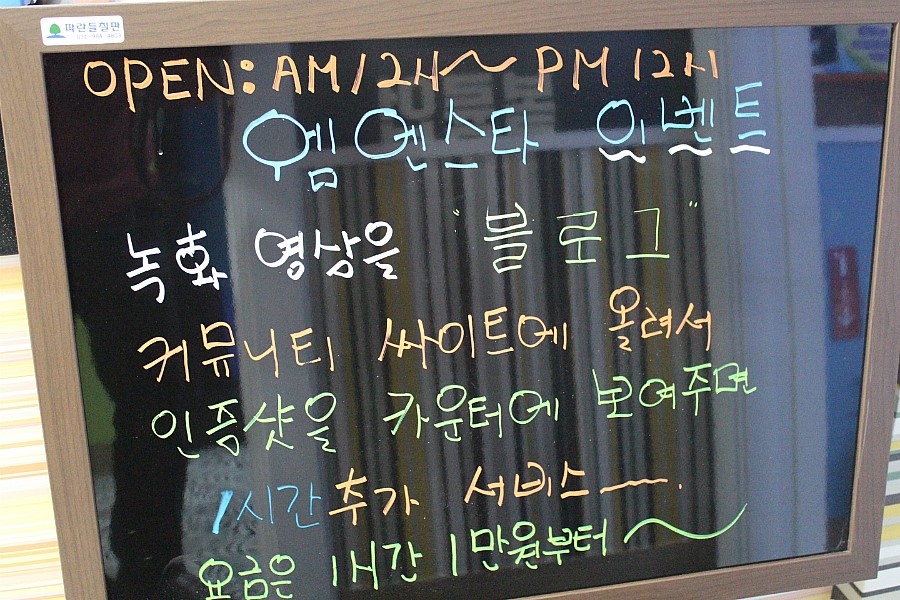 파란들칠판
OPEN: AM 12시~ PM 12시
엠엔스타 이벤트
녹화 영상을 "블로그"
커뮤니티 싸이트에 올려서
인증샷을 카운터에 보여주면
1시간 추가 서비스~.
요금은 1시간 1만원부터~